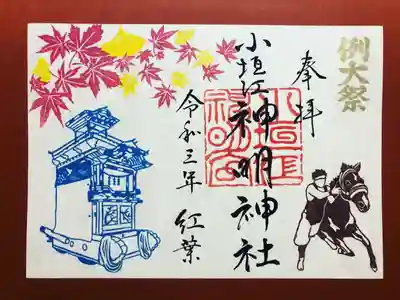 例大祭
奉拝
小垣江神明神社
令和三年 紅葉